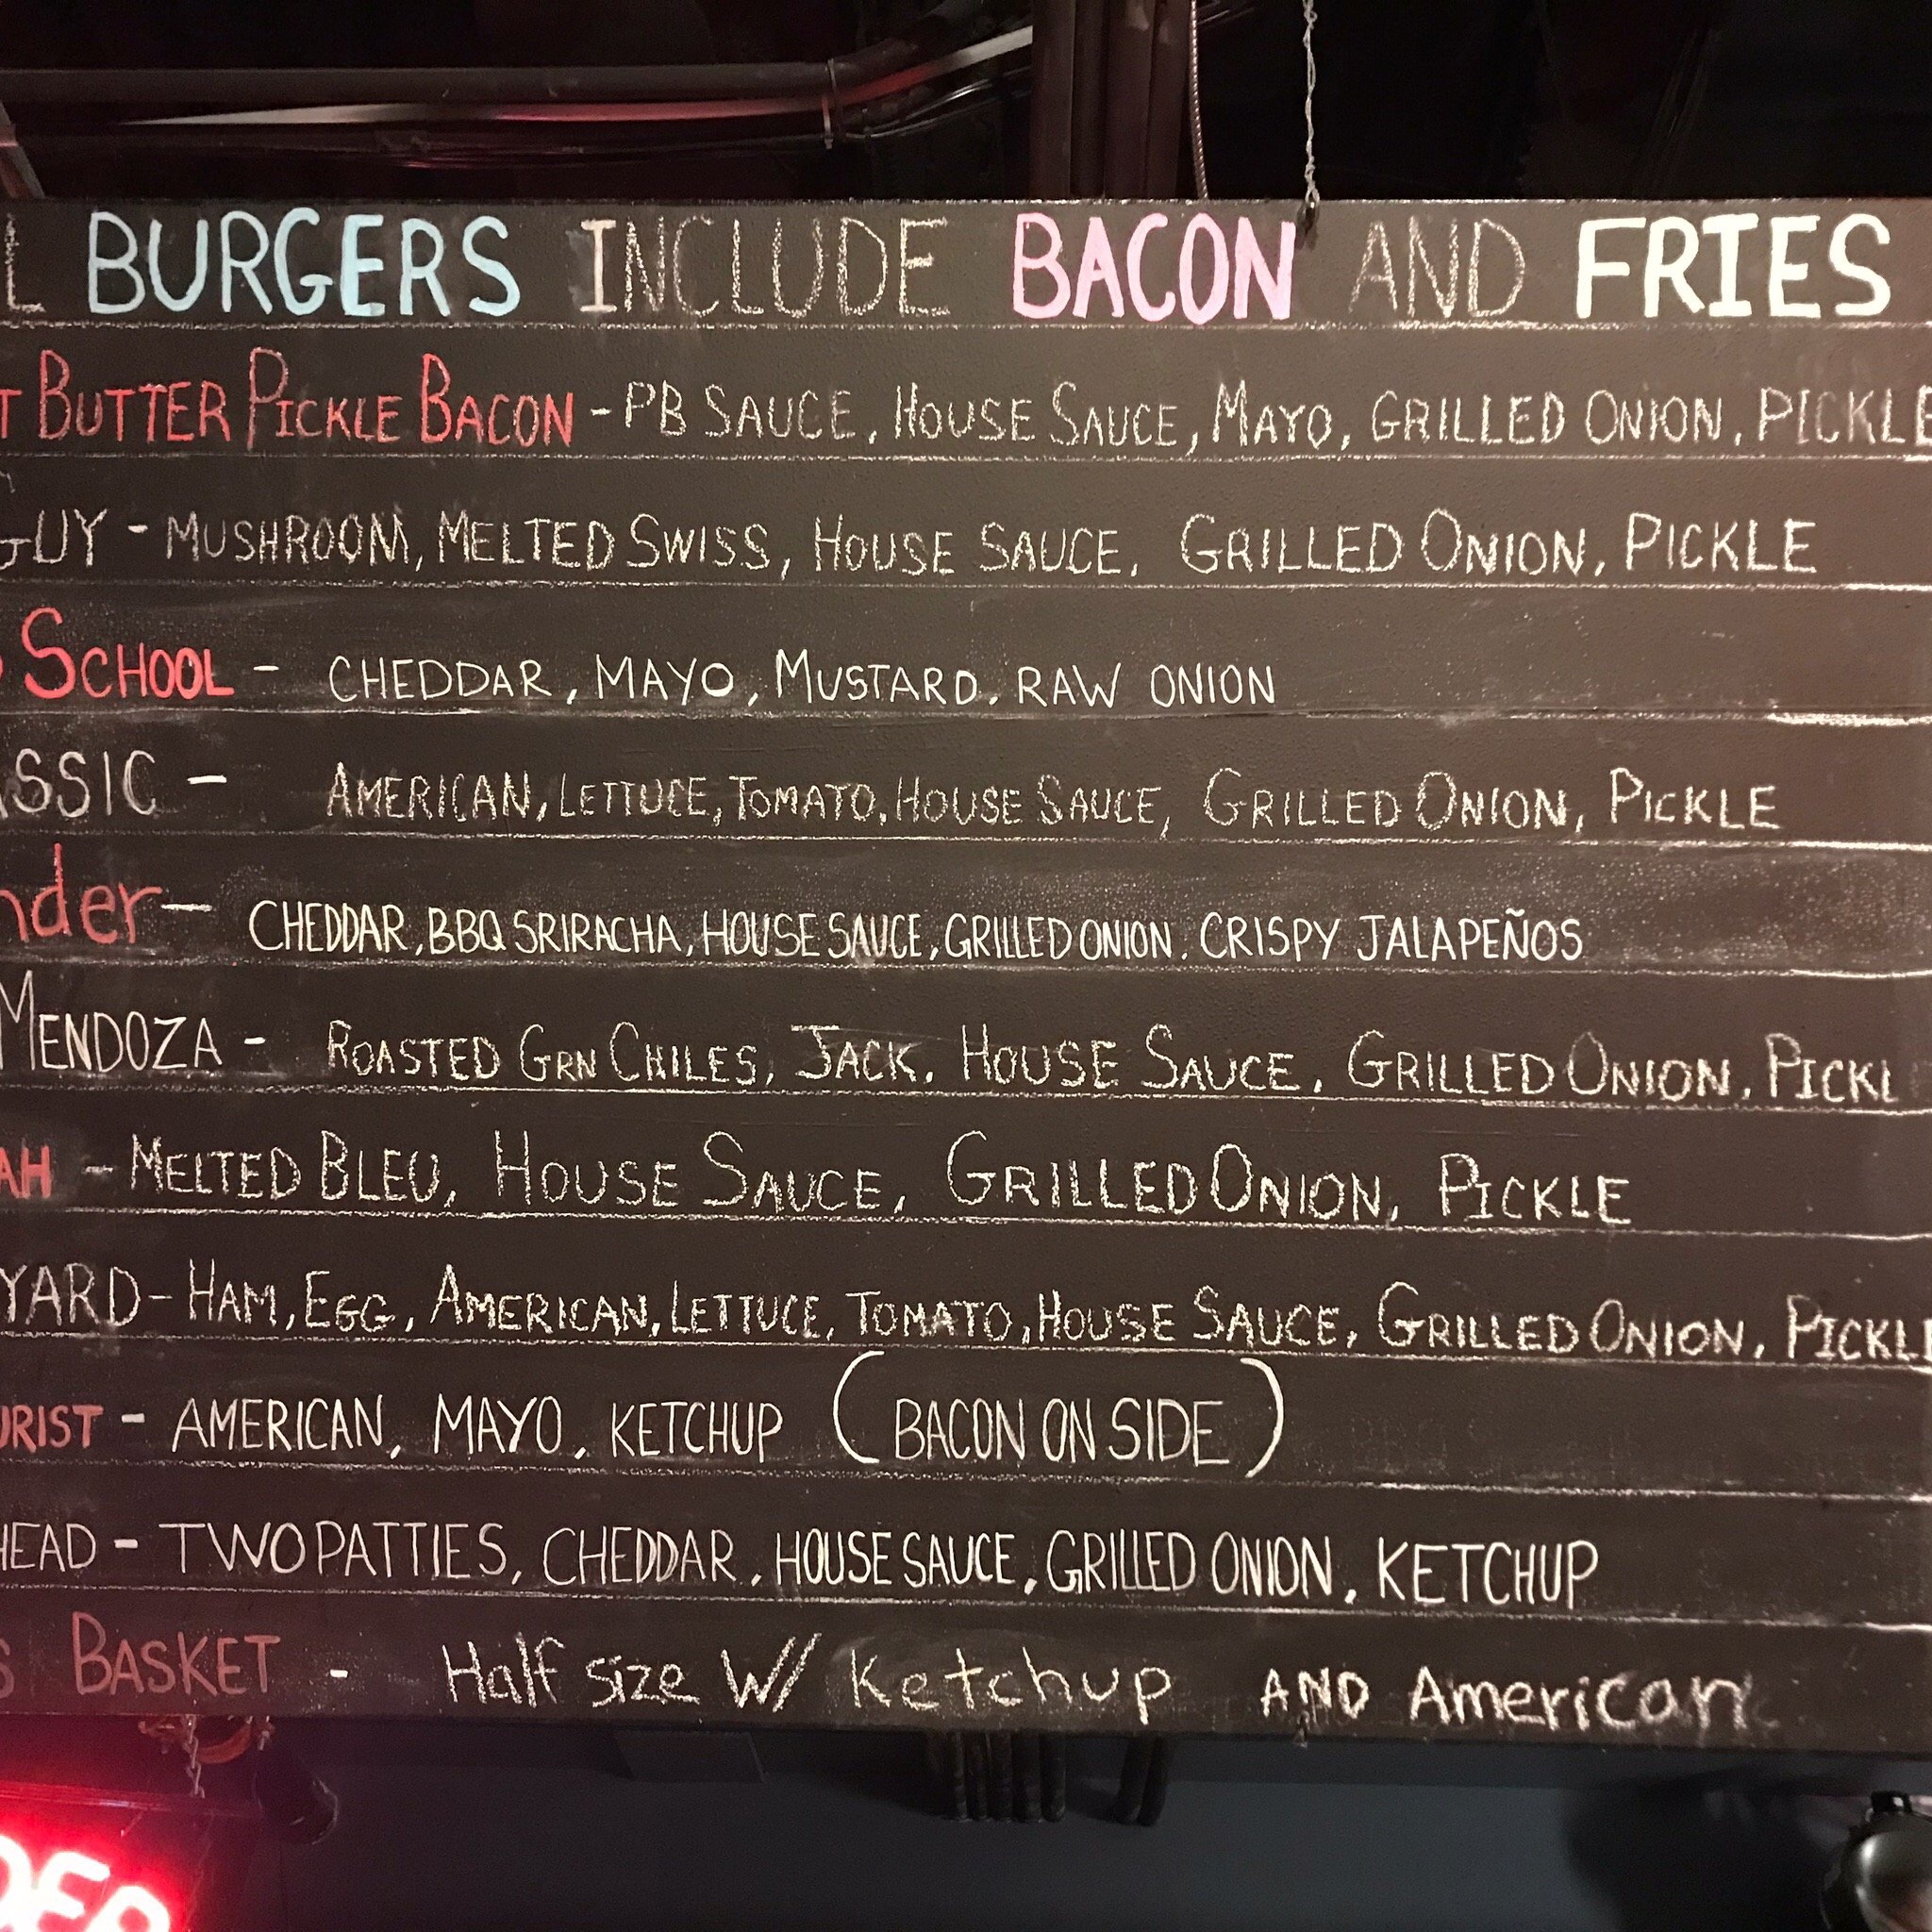 L BURGERS INCLUDE BACON AND FRIES
T BUTTER PICKLE BACON - PB SAUCE, HOUSE SAUCE, MAYO, GRILLED ONION, PICKLE
GUY - MUSHROOM, MELTED SWISS, HOUSE SAUCE, GRILLED ONION, PICKLE
SCHOOL - CHEDDAR, MAYO, MUSTARD, RAW ONION
ASSIC - AMERICAN, LETTUCE, TOMATO, HOUSE SAUCE, GRILLED ONION, PICKLE
nder - CHEDDAR, BBQ SRIRACHA, HOUSE SAUCE, GRILLED ONION, CRISPY JALAPEÑOS
MENDOZA - ROASTED GRN CHILES, JACK, HOUSE SAUCE, GRILLED ONION, PICKL
AH - MELTED BLEU, HOUSE SAUCE, GRILLED ONION, PICKLE
YARD - HAM, EGG, AMERICAN, LETTUCE, TOMATO, HOUSE SAUCE, GRILLED ONION, PICKLE
URIST - AMERICAN, MAYO, KETCHUP (BACON ON SIDE)
HEAD - TWO PATTIES, CHEDDAR, HOUSE SAUCE, GRILLED ONION, KETCHUP
S BASKET - Half size W/ Ketchup AND American
DER